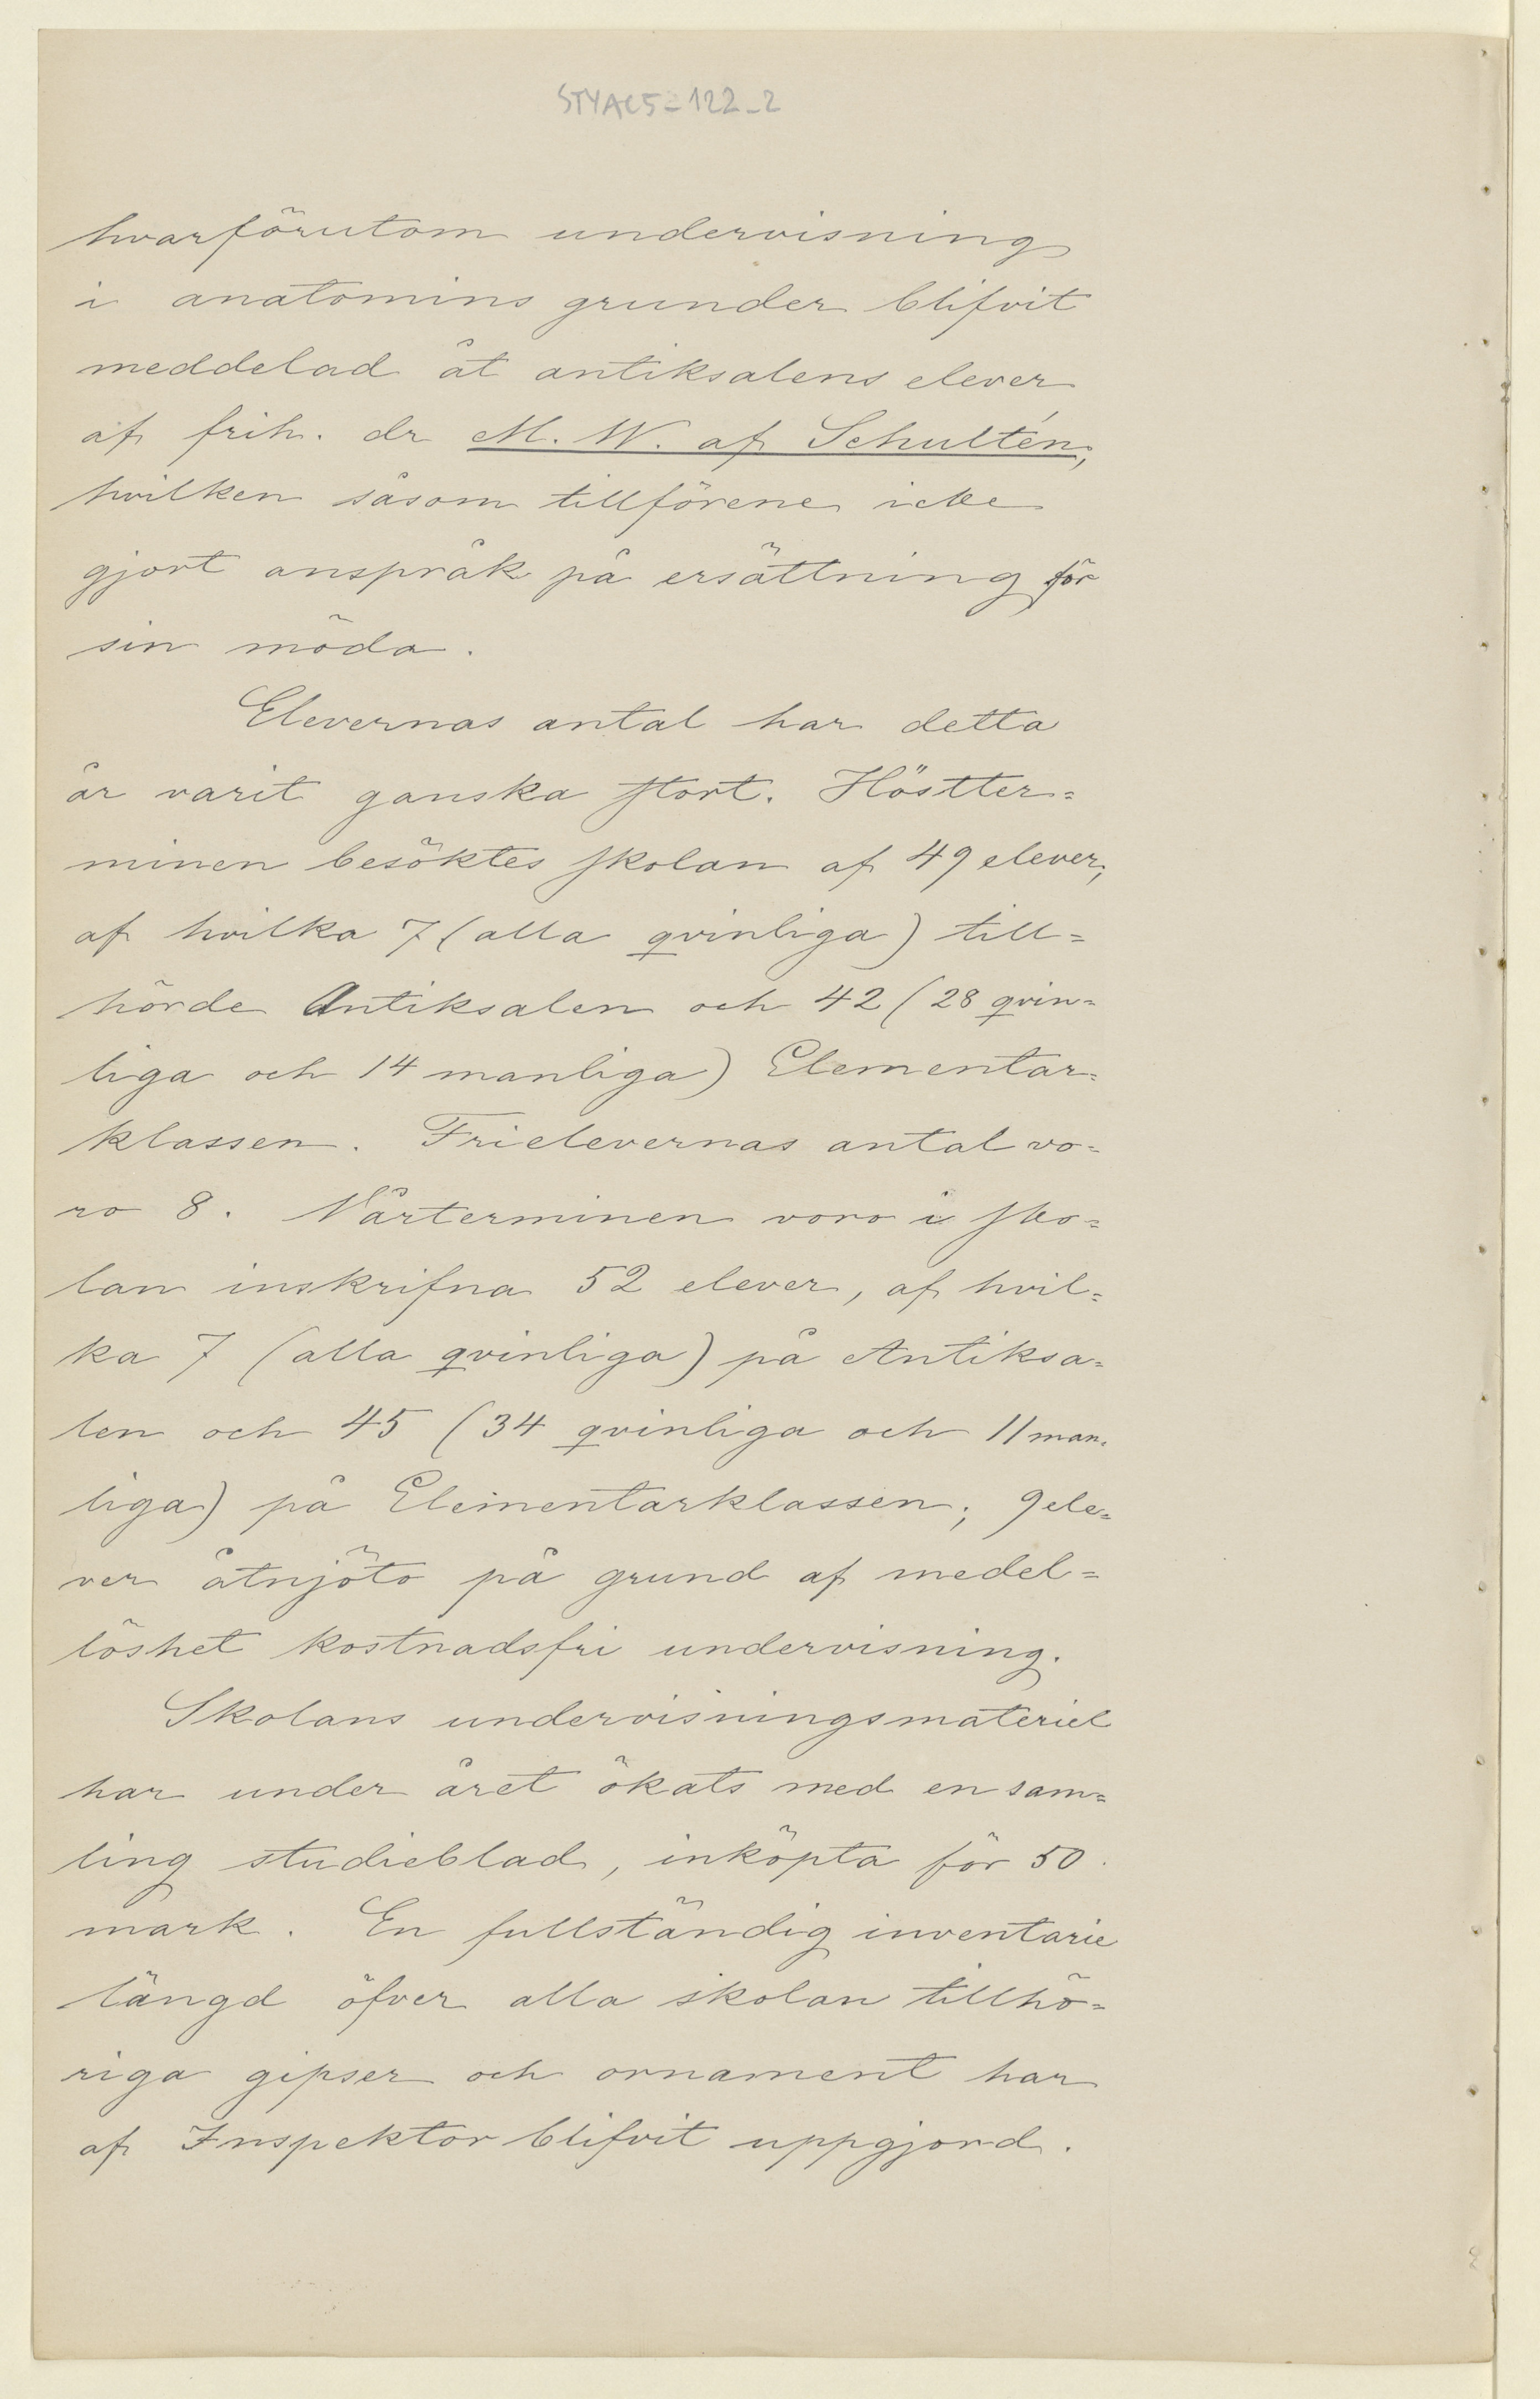 STYAC5=122_2
hvarförutom undervisning
i anatomins grunder blifvit
meddelad åt antiksalens elever
af frih. dr M. W. af Schultén,
hvilken såsom tillförene icke
gjort anspråk på ersättning för
sin möda.
Elevernas antal har detta
år varit ganska stort. Höstter=
minen besöktes skolan af 49 elever,
af hvilka 7 (alla qvinliga) till=
hörde Antiksalen och 42 (28 qvin=
liga och 14 manliga) Elementar=
klassen. Frielevernas antal vo=
ro 8. Vårterminen voro i sko=
lan inskrifna 52 elever, af hvil=
ka 7 (alla qvinliga) på Antiksa=
len och 45 (34 qvinliga och 11 man=
liga) på Elementarklassen; 9 ele=
ver åtnjöto på grund af medel=
löshet kostnadsfri undervisning.
Skolans undervisningsmateriel
har under året ökats med en sam=
ling studieblad, inköpta för 50
mark. En fullständig inventarie
längd öfver alla skolan tillhö=
riga gipser och ornament har
af Inspektor blifvit uppgjord.